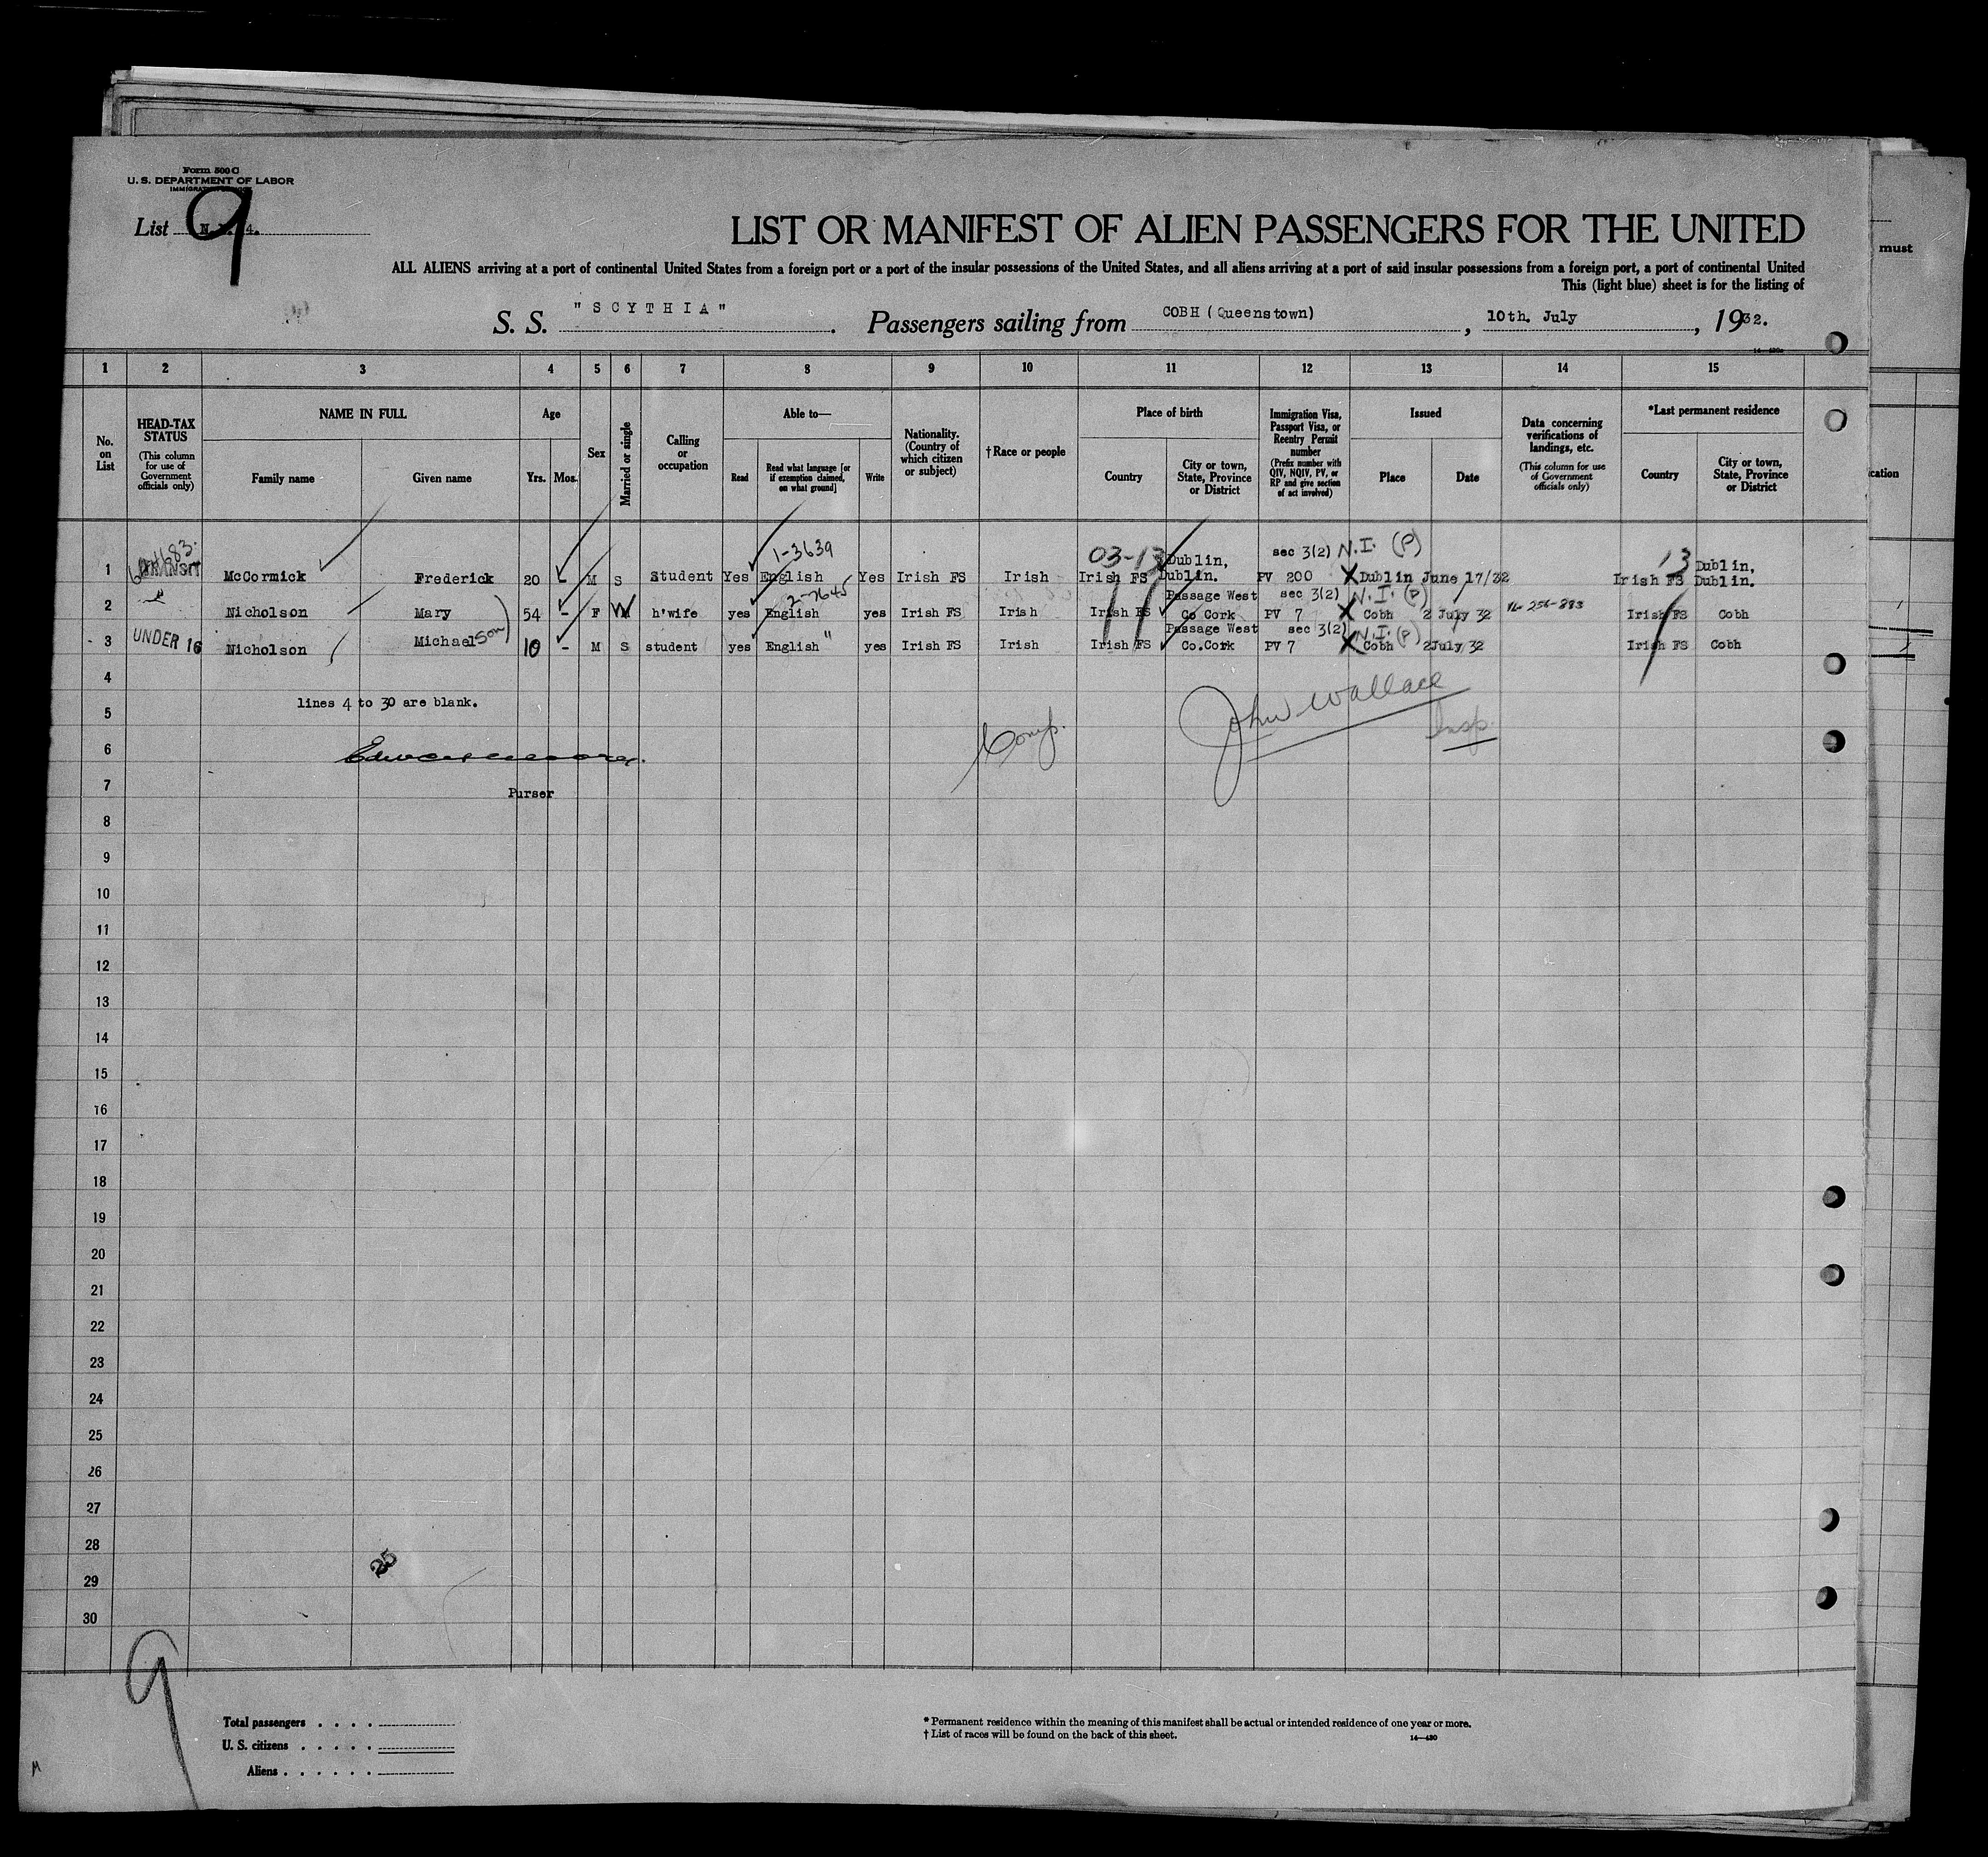 Form 500 C
U. S. DEPARTMENT OF LABOR
List 9
LIST OR MANIFEST OF ALIEN PASSENGERS FOR THE UNITED
ALL ALIENS arriving at a port of continental United States from a foreign port or a port of the insular possessions of the United States, and all aliens arriving at a port of said insular possessions from a foreign port, a port of continental United
This (light blue) sheet is for the listing of
must
S. S. "SCYTHIA". Passengers sailing from COBH (Queenstown), 10th. July, 1932.
1 2 3 4 5 6 7 8 9 10 11 12 13 14 15
No. on List
HEAD-TAX STATUS
(This column for use of Government officials only)
NAME IN FULL
Family name
Given name
Age
Yrs.
Mos.
Sex
Married or single
Calling or occupation
Able to—
Read
Read what language [or if exemption claimed, on what ground]
Write
Nationality. (Country of which citizen or subject)
†Race or people
Place of birth
Country
City or town, State, Province or District
Immigration Visa, Passport Visa, or Reentry Permit number
(Prefix number with QIV, NQIV, PV, or RP and give section of act involved)
Issued
Place
Date
Data concerning verifications of landings, etc.
(This column for use of Government officials only)
*Last permanent residence
Country
City or town, State, Province or District
cation
1-3639 03-13 Dublin, sec 3(2) N.I. (P) 13 Dublin,
1 McCormick Frederick 20 - M S Student Yes English Yes Irish FS Irish Irish FS Dublin. PV 200 X Dublin June 17/32 Irish FS Dublin.
2-7645 Passage West sec 3(2) N.I. (P)
2 Nicholson Mary 54 - F W h'wife yes English yes Irish FS Irish Irish FS Co Cork PV 7 X Cobh 2 July 32 Irish FS Cobh
Passage West sec 3(2) N.I. (P)
3 UNDER 16 Nicholson Michael Son 10 - M S student yes English " yes Irish FS Irish Irish FS Co.Cork PV 7 X Cobh 2July 32 Irish FS Cobh
4
lines 4 to 30 are blank.
5
John Wallace
Insp.
Comp.
6
7
Purser
8
9
10
11
12
13
14
15
16
17
18
19
20
21
22
23
24
25
26
27
28
29
30
9
Total passengers
U. S. citizens
Aliens
* Permanent residence within the meaning of this manifest shall be actual or intended residence of one year or more.
† List of races will be found on the back of this sheet.
14—430